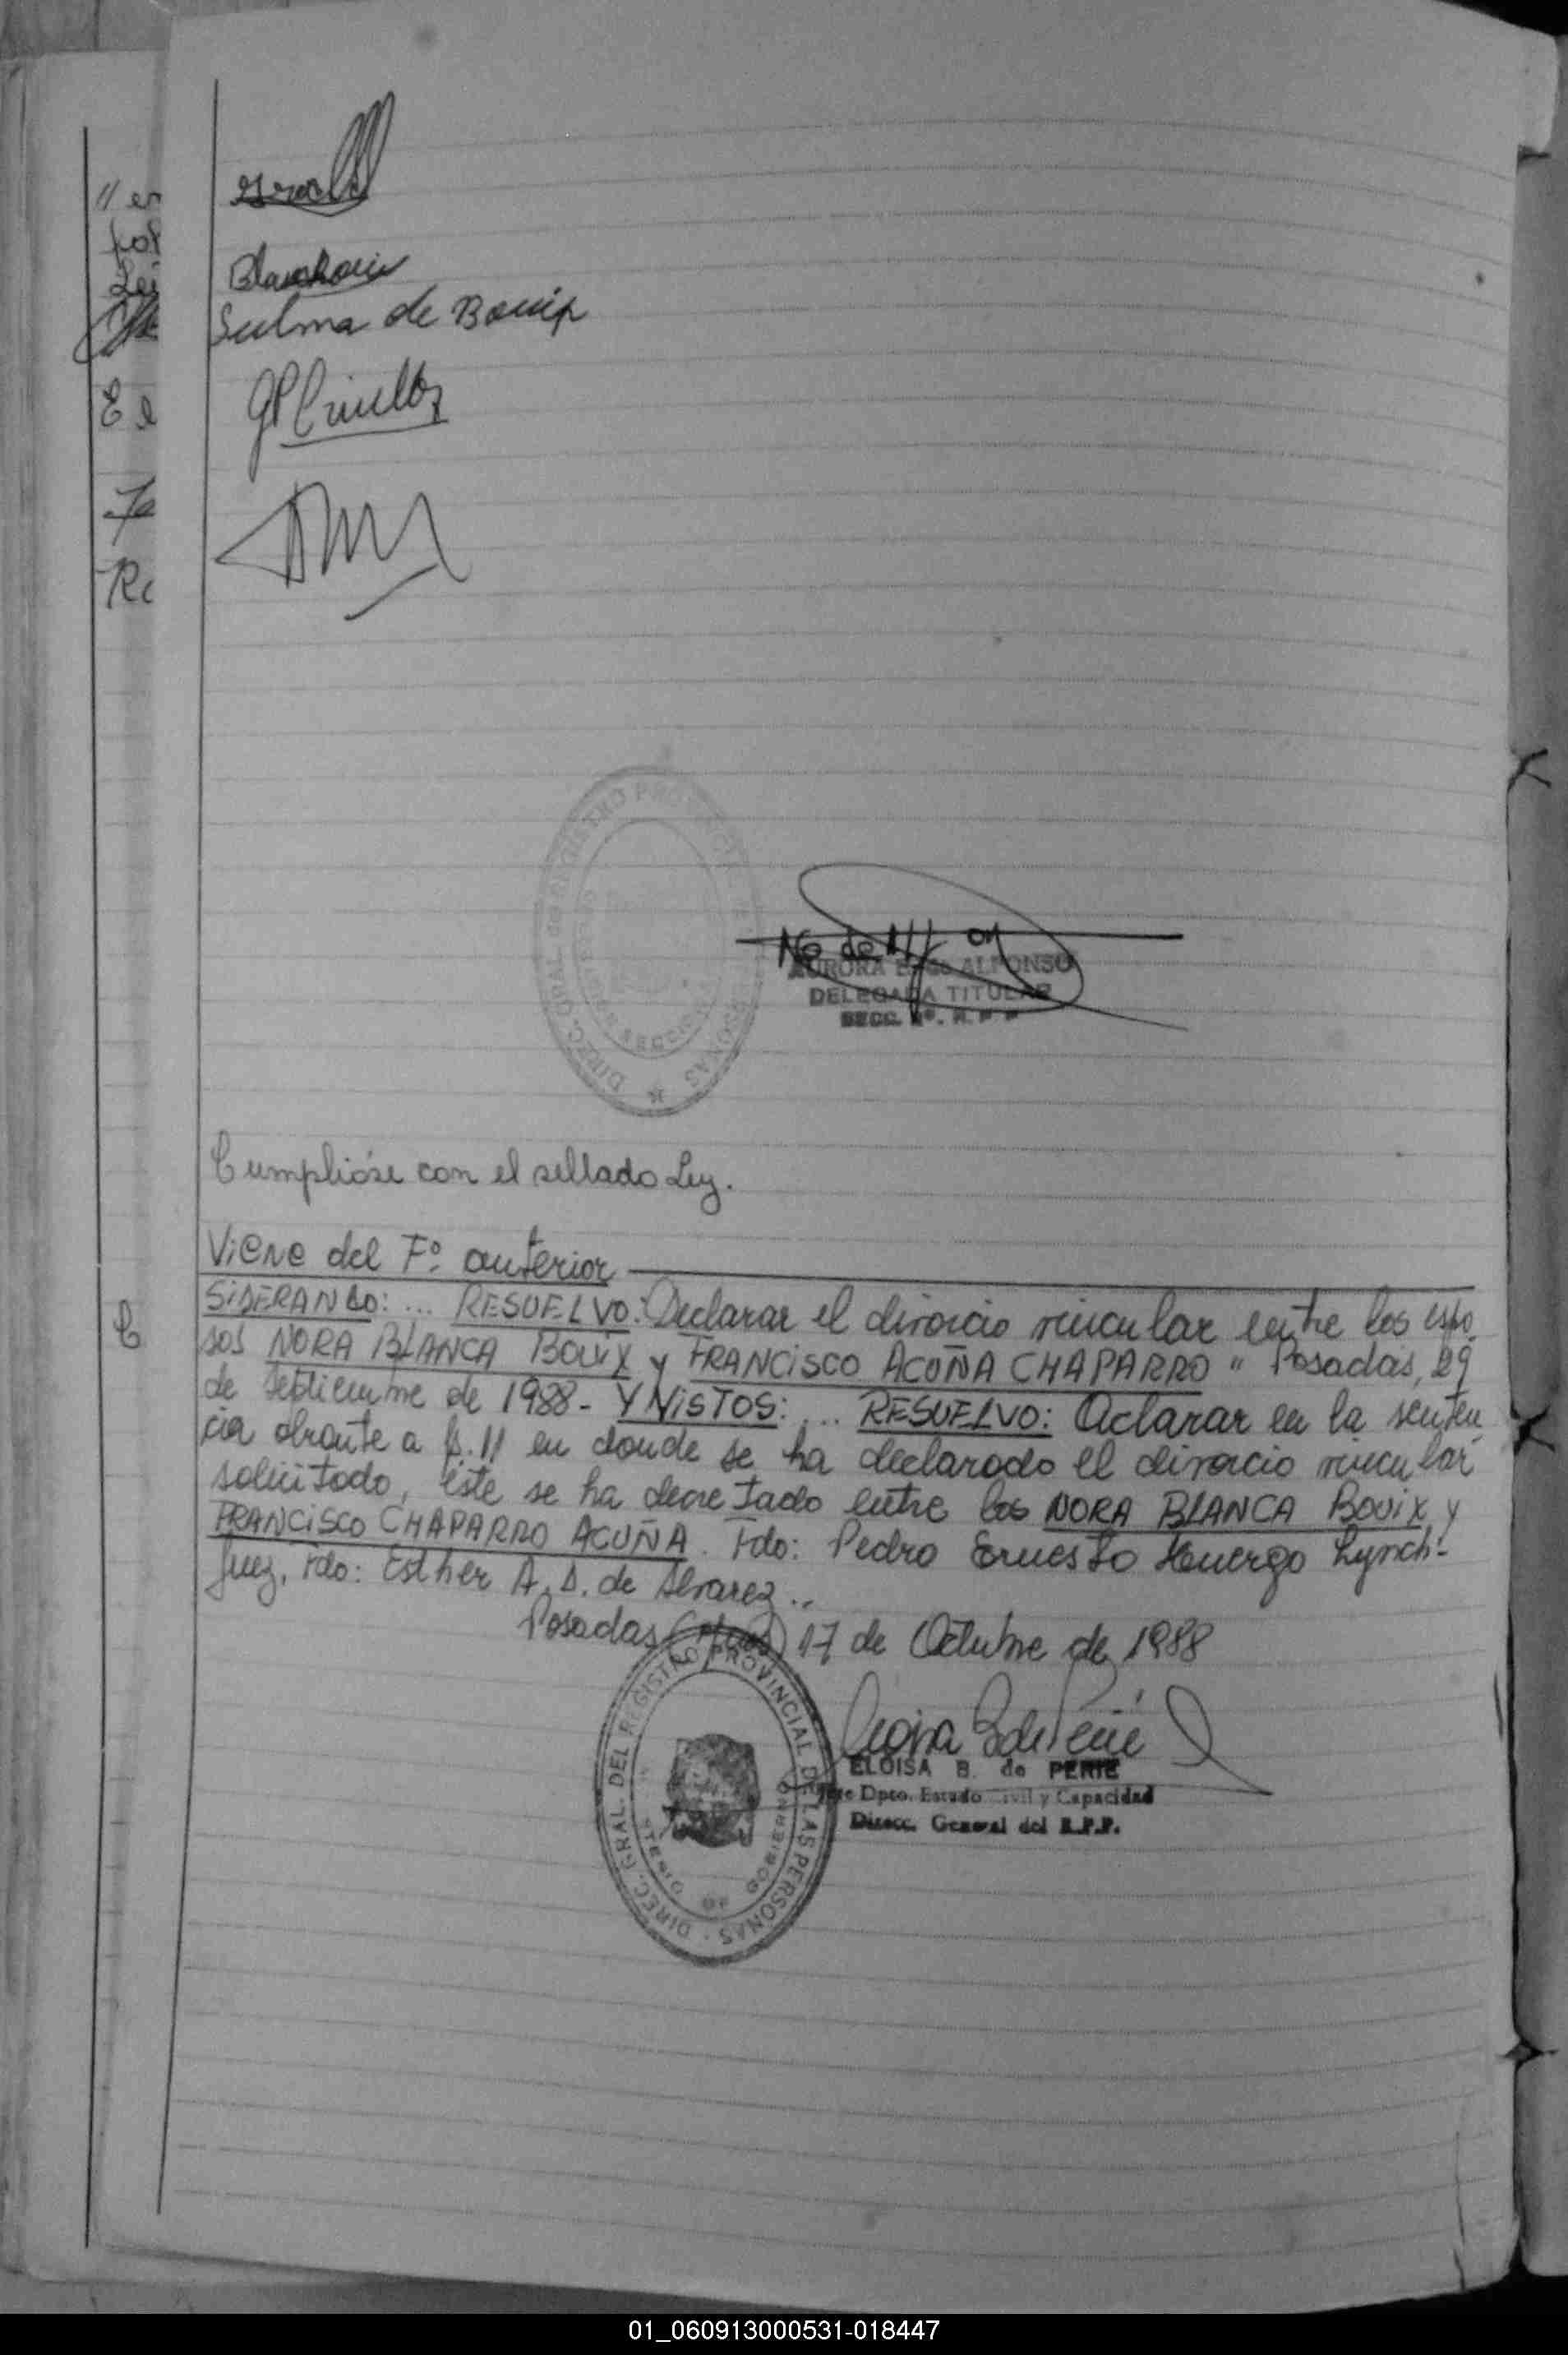 Sulma de Bouix
AURORA ALFONSO
DELEGADA TITULAR
SECC.
DIREC. GRAL. del REGISTRO PROVINCIAL PERSONAS
Cumplióse con el sellado Ley.
Viene del Fº anterior
SIDERANDO: ... RESUELVO: Declarar el divorcio vincular entre los espo
sos NORA BLANCA BOUIX y FRANCISCO ACUÑA CHAPARRO " Posadas, 29
de Septiembre de 1988 - Y VISTOS: ... RESUELVO: Aclarar en la senten
cia obrante a fs. 11 en donde se ha declarado el divorcio vincular
solicitado, éste se ha decretado entre los NORA BLANCA BOUIX y
FRANCISCO CHAPARRO ACUÑA. Fdo: Pedro Ernesto Huergo Lynch-
Juez. Fdo: Esther A. D. de Alvarez..
Posadas (Mnes) 17 de Octubre de 1988
DIREC. GRAL. DEL REGISTRO PROVINCIAL DE LAS PERSONAS
GOBIERNO
ELOISA B. de PERIE
Jefe Dpto. Estado Civil y Capacidad
Direcc. General del R.P.P.
01_060913000531-018447